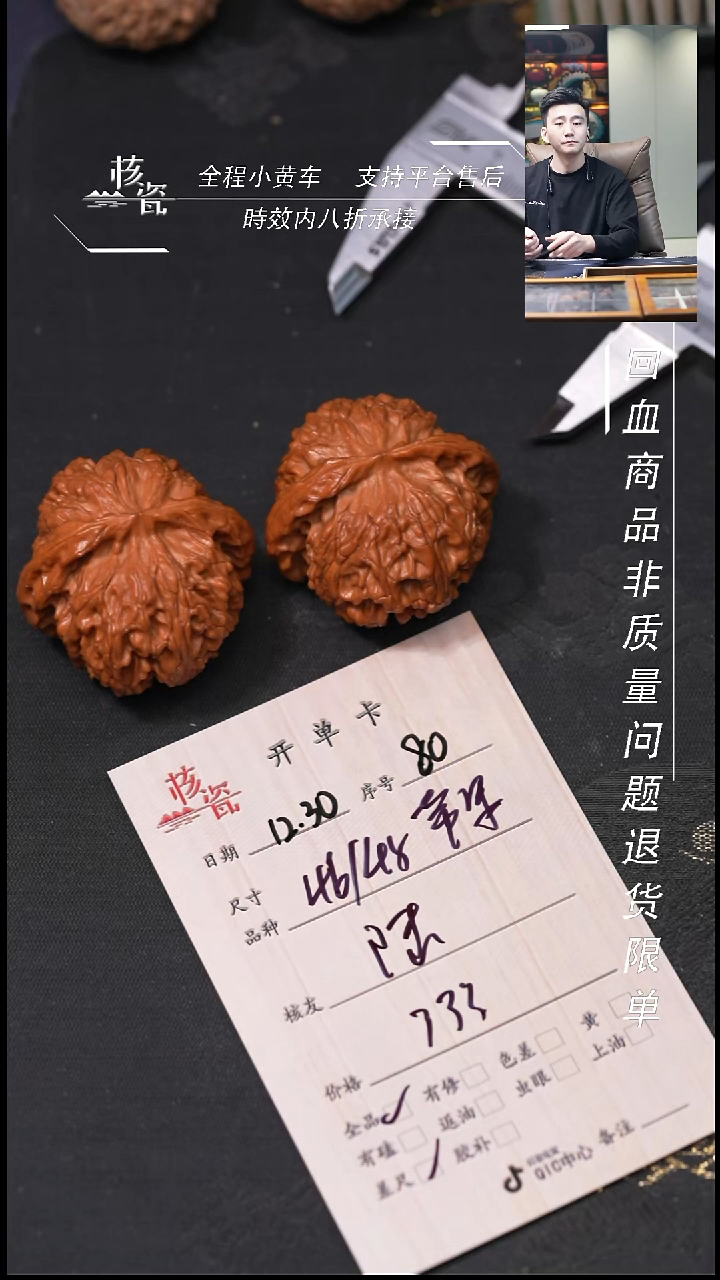 核瓷
全程小黄车 支持平台售后
時效内八折承接
回血商品非质量问题退货限单
开单卡
核瓷
日期 12.30 序号 80
尺寸 46/48
品种
核友 陆
价格 733
全品 有修 色差 黄
有磕 返油 虫眼 上油
差尺 胶补
QIC中心 备注